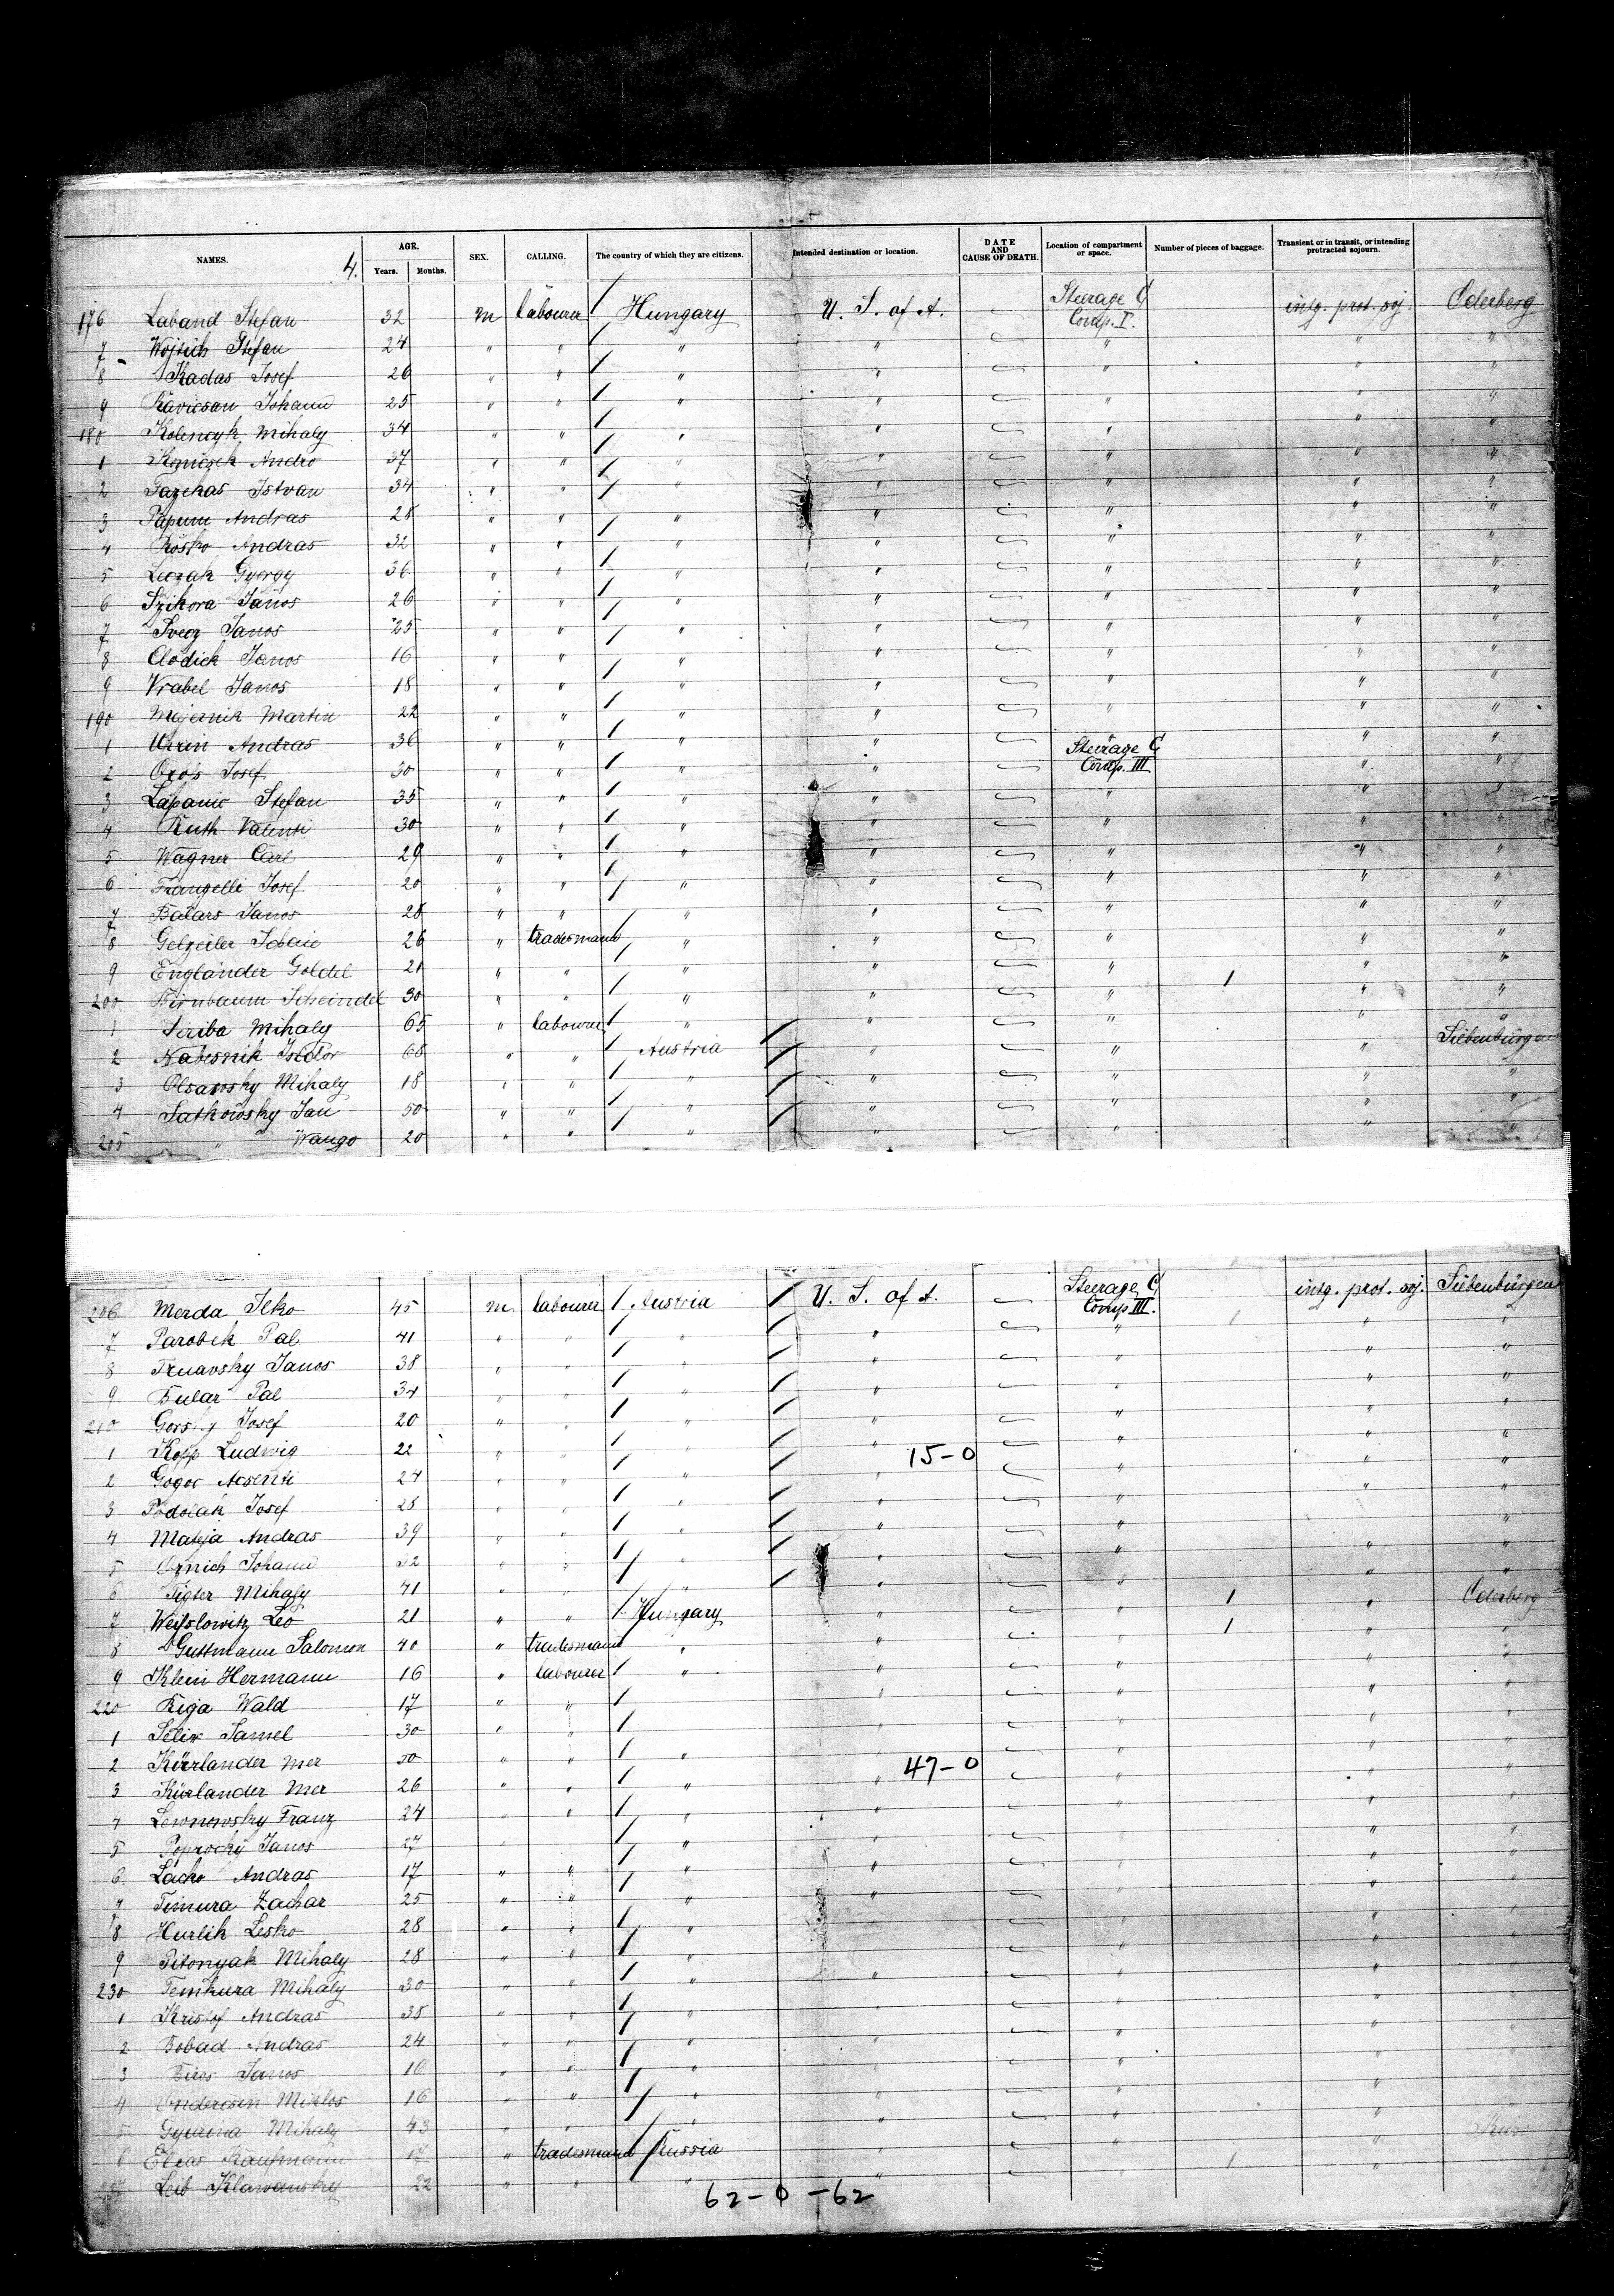 NAMES. 4. AGE. Years. Months. SEX. CALLING. The country of which they are citizens. Intended destination or location. DATE AND CAUSE OF DEATH. Location of compartment or space. Number of pieces of baggage. Transient or in transit, or intending protracted sojourn.
176 Laband Stefan 32 m labourer Hungary U. S. of A. Steerage C Comp. I. intg. prot. soj. Oderberg
7 Wojtich Stefan 24 " " " " " " "
8 Kadas Josef 26 " " " " " " "
9 Johann 25 " " " " " " "
180 Mihaly 34 " " " " " " "
1 Andro 37 " " " " " " "
2 Fazekas Istvan 34 " " " " " " "
3 Andras 28 " " " " " " "
4 Rosko Andras 32 " " " " " " "
5 Leczak György 36 " " " " " " "
6 Szikora Janos 26 " " " " " " "
7 Svecz Janos 25 " " " " " " "
8 Clodick Janos 16 " " " " " " "
9 Vrabel Janos 18 " " " " " " "
190 Majernik Martin 22 " " " " " " "
1 Andras 36 " " " " Steerage C Comp. III " "
2 Oros Josef 30 " " " " " "
3 Lapanic Stefan 35 " " " " " " "
4 Ruth Valenti 30 " " " " " " "
5 Wagner Carl 29 " " " " " " "
6 Frangelli Josef 20 " " " " " " "
7 Balars Janos 28 " " " " " " "
8 26 " tradesmann " " " " "
9 Engländer Goldel 21 " " " " " 1 " "
200 Birnbaum Scheindel 30 " " " " " " "
1 Mihaly 65 " labourer " " " " "
2 Isidor 68 " " Austria " " " Siebenbürgen
3 Olsavsky Mihaly 18 " " " " " " "
4 Satkowsky Jan 50 " " " " " " "
205 " Wango 20 " " " " " " "
206 Merda Ilko 45 m labourer Austria U. S. of A. Steerage C Comp III. 1 intg. prot. soj. Siebenbürgen
7 Parobek Pal 41 " " " " " " "
8 Janos 38 " " " " " " "
9 Bular Pal 34 " " " " " " "
210 Josef 20 " " " " " " "
1 Kopp Ludwig 22 " " " " 15-0 " " "
2 Gogoc 24 " " " " " " "
3 Podolak Josef 28 " " " " " " "
4 Mateja Andras 39 " " " " " " "
5 Johann 32 " " " " " " "
6 Mihaly 41 " " " " " 1 " "
7 Weißlowitz Leo 21 " " Hungary " " 1 " Oderberg
8 Guttmann Salomon 40 " tradesmann " " " " "
9 Klein Hermann 16 " labourer " " " " "
220 Riga Wald 17 " " " " " " "
1 Samel 30 " " " " " " "
2 Kürlander Mer 50 " " " " 47-0 " " "
3 Kürlander Mer 26 " " " " " " "
4 Lewnowsky Franz 24 " " " " " " "
5 Poprocky Janos 27 " " " " " " "
6 Lacko Andras 17 " " " " " " "
7 Timura Zachar 25 " " " " " " "
8 Hurlik Lesko 28 " " " " " " "
9 Pitonyak Mihaly 28 " " " " " " "
230 Temkura Mihaly 30 " " " " " " "
1 Kristof Andras 35 " " " " " " "
2 Bobad Andras 24 " " " " " " "
3 Biros Janos 16 " " " " " " "
4 Miklos 16 " " " " " " "
5 Gyurina Mihaly 43 " " " " " " "
6 Elias Kaufmann 17 " tradesmann Russia " " 1 "
237 Leib Klawansky 22 " " "
62-0-62